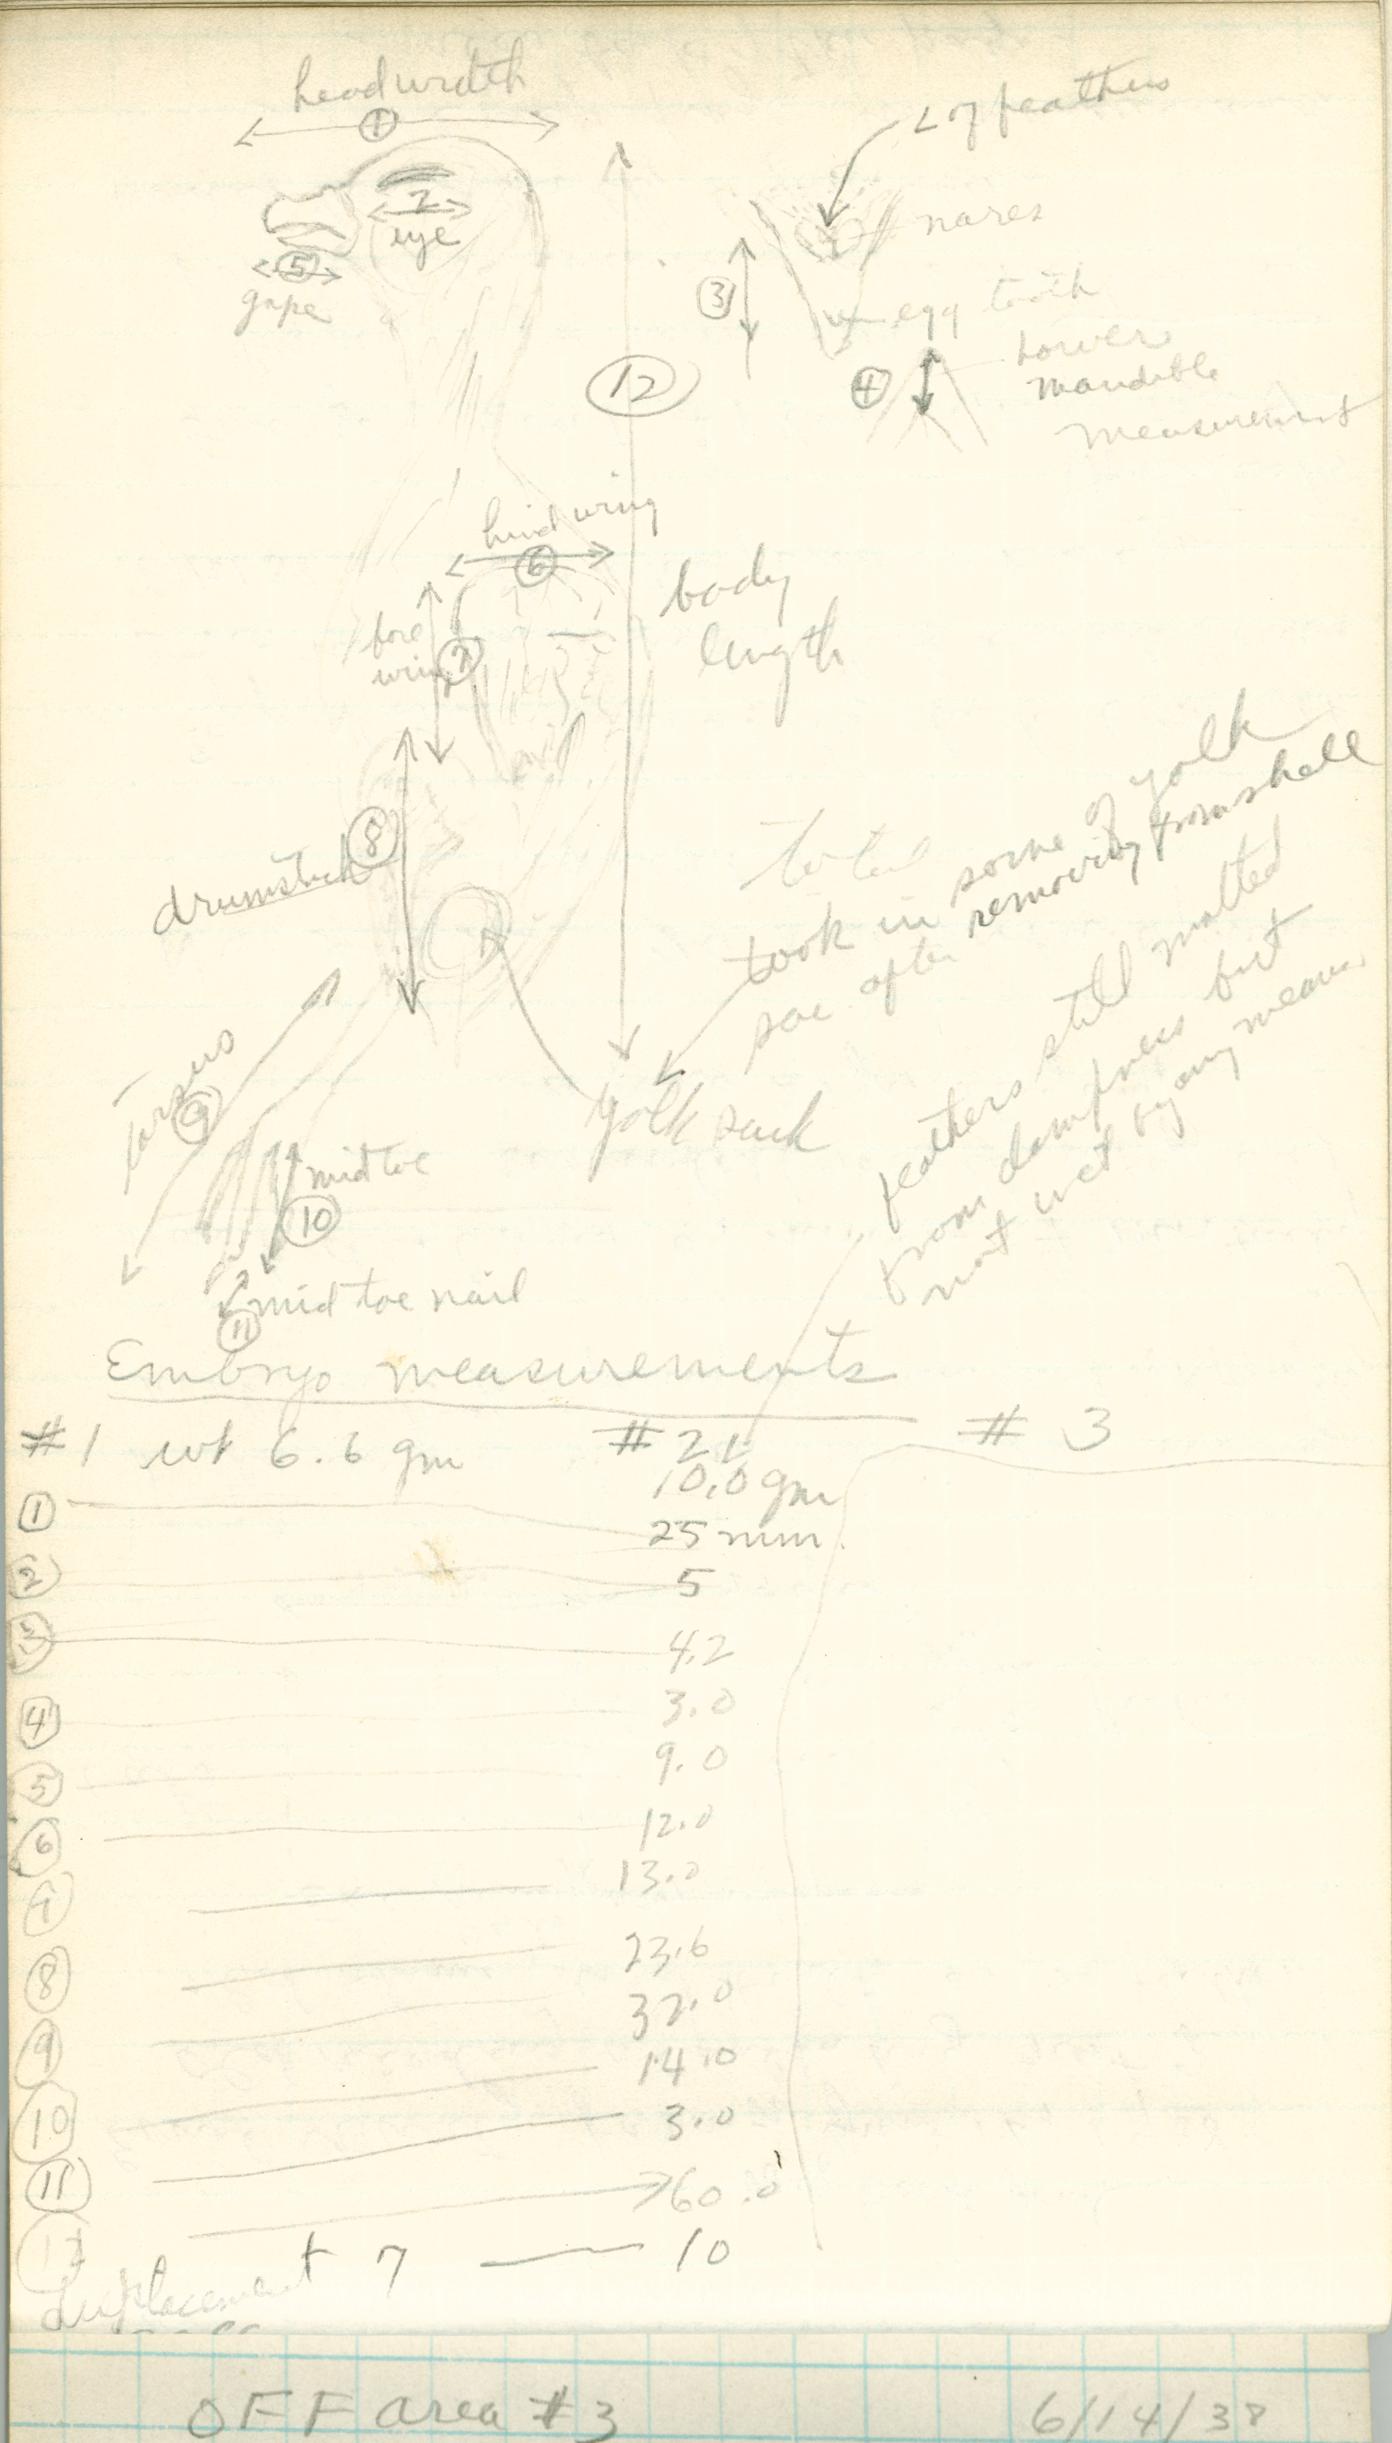 head width
①
2
eye
⑤
gape
< of feathers
nares
③
egg tooth
④
Lower
mandible
measurement
⑫
hind wing
⑥
fore
wing
⑦
body
length
drumstick
⑧
total
took in some of yolk
sac after removing from shell
feathers still matted
from dampness but
not wet by any means
yolk sack
tarsus
⑨
mid toe
⑩
mid toe nail
⑪
Embryo measurements
#1 wt 6.6 gm #2 #3
10.0 gm
① 25 mm.
② 5
③ 4.2
④ 3.0
⑤ 9.0
⑥ 12.0
⑦ 13.0
⑧ 23.6
⑨ 32.0
⑩ 14.0
⑪ 3.0
⑫ 60.0
displacement 7 — 10
OFF area #3 6/14/38